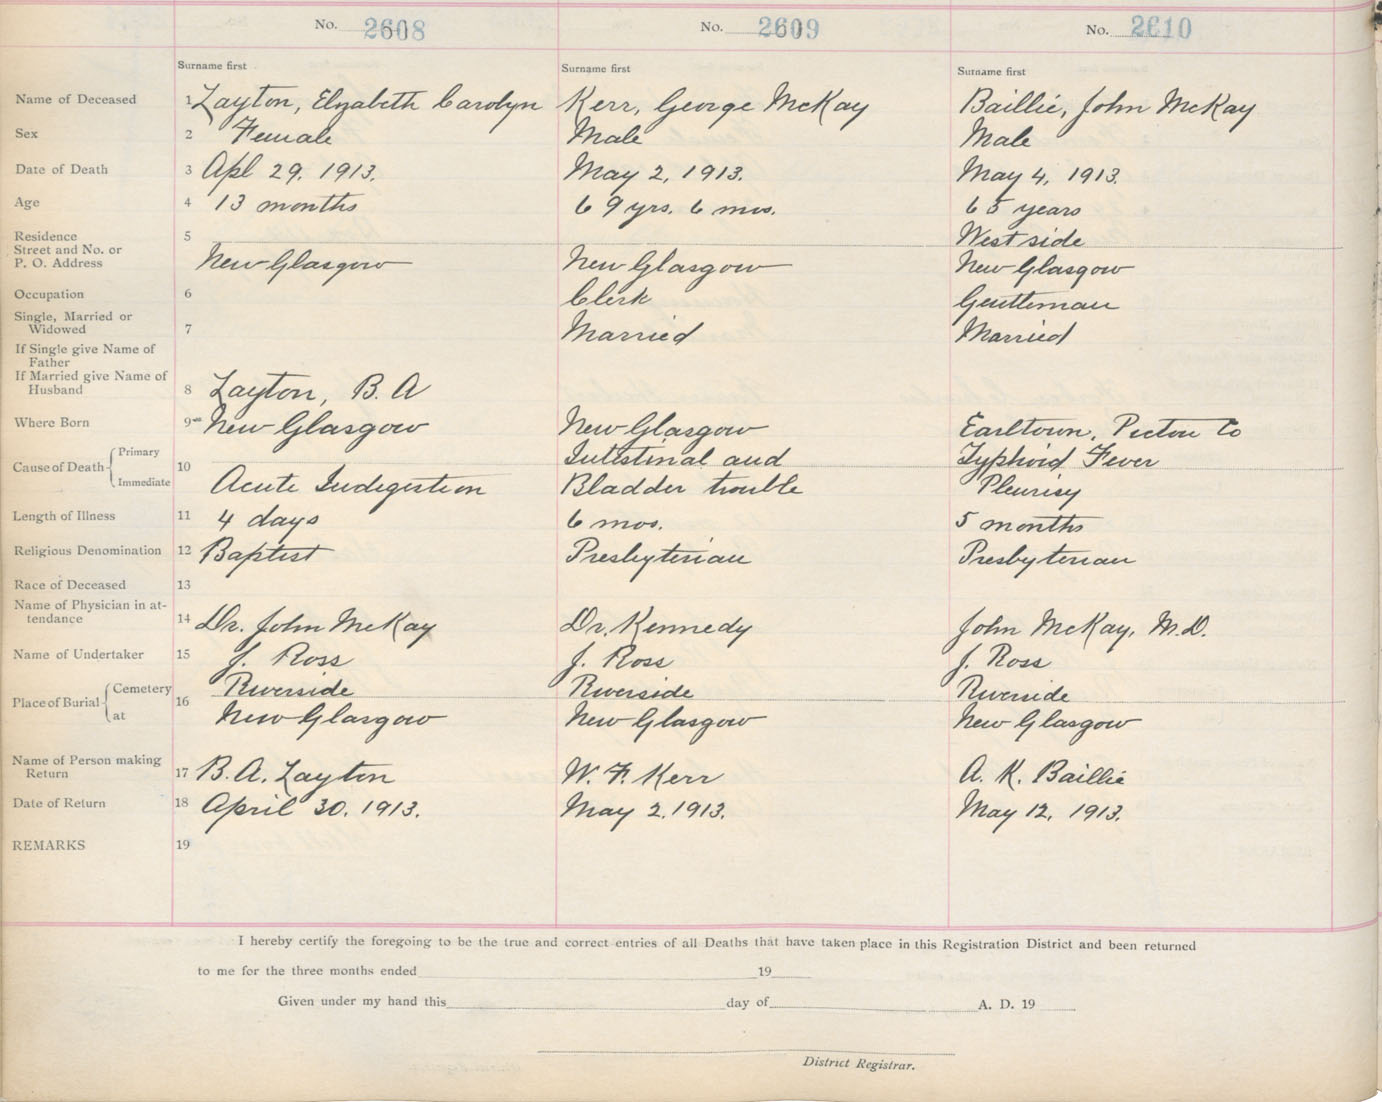 No. 2608 No. 2609 No. 2610
Surname first Surname first Surname first
Name of Deceased 1 Layton, Elyabeth Carolyn Kerr, George McKay Baillie, John McKay
Sex 2 Female Male Male
Date of Death 3 Apl 29. 1913. May 2, 1913. May 4, 1913.
Age 4 13 months 69 yrs. 6 mos. 65 years
Residence 5 West side
Street and No. or
P. O. Address New Glasgow New Glasgow New Glasgow
Occupation 6 Clerk Gentleman
Single, Married or
Widowed 7 Married Married
If Single give Name of
Father
If Married give Name of
Husband 8 Layton, B. A
Where Born 9 New Glasgow New Glasgow Earltown, Pictou Co
Cause of Death Primary 10 Intestinal and Typhoid Fever
Immediate Acute Indigestion Bladder trouble Pleurisy
Length of Illness 11 4 days 6 mos. 5 months
Religious Denomination 12 Baptist Presbyterian Presbyterian
Race of Deceased 13
Name of Physician in at-
tendance 14 Dr. John McKay Dr. Kennedy John McKay, M.D.
Name of Undertaker 15 J. Ross J. Ross J. Ross
Place of Burial Cemetery 16 Riverside Riverside Riverside
at New Glasgow New Glasgow New Glasgow
Name of Person making
Return 17 B. A. Layton W. F. Kerr A. K. Baillie
Date of Return 18 April 30. 1913. May 2. 1913. May 12, 1913.
REMARKS 19
I hereby certify the foregoing to be the true and correct entries of all Deaths that have taken place in this Registration District and been returned
to me for the three months ended 19
Given under my hand this day of A. D. 19
District Registrar.